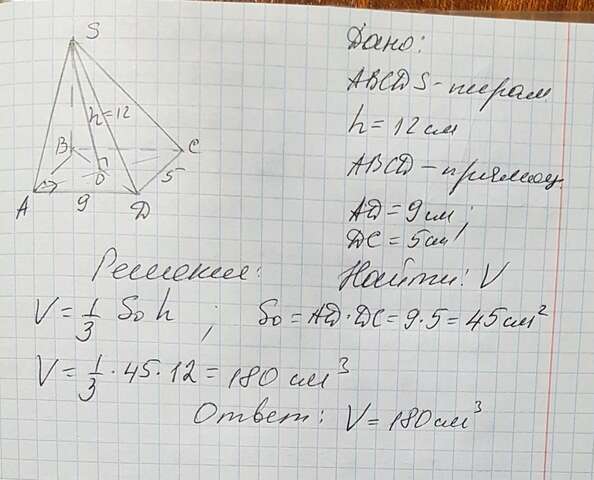 S
h=12
B
C
O
5
A
9
D
Дано:
ABCDS - пирам
h = 12 см
ABCD - прямоуг.
AD = 9 см;
DC = 5 см
Решение:
Найти: V
V = 1/3 Sо h ; Sо = AD·DC = 9·5 = 45 см²
V = 1/3 · 45 · 12 = 180 см³
Ответ: V = 180 см³